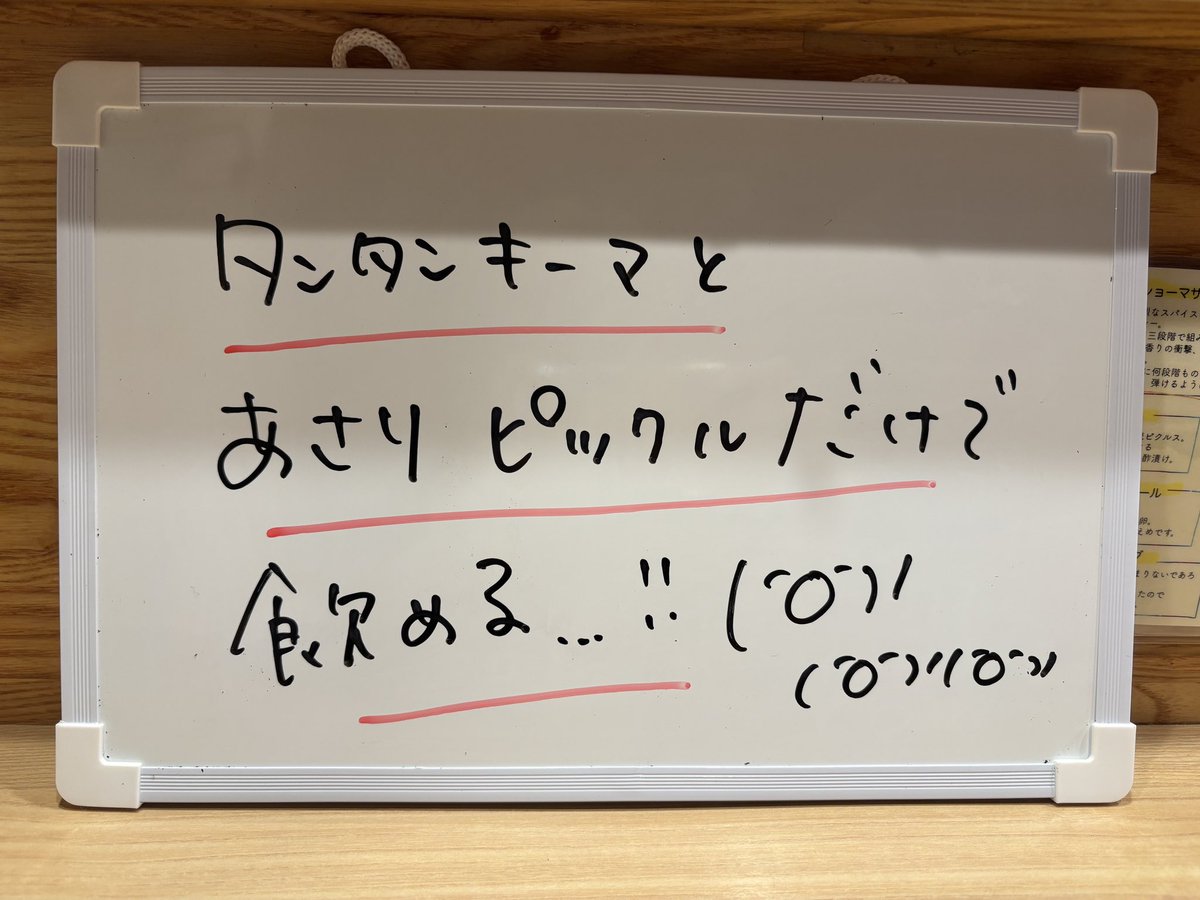 タンタンキーマと
あさりピックルだけで
飲める...!! (゜o゜)!
(゜o゜)!(゜o゜)!
ショーマサ
なスパイス
ー。
三段階で組み
香りの衝撃、
に何段階もの
弾けるよう
ピクルス。
る
酢漬け。
ール
卵。
えめです。
プ
まりないであろ
たので